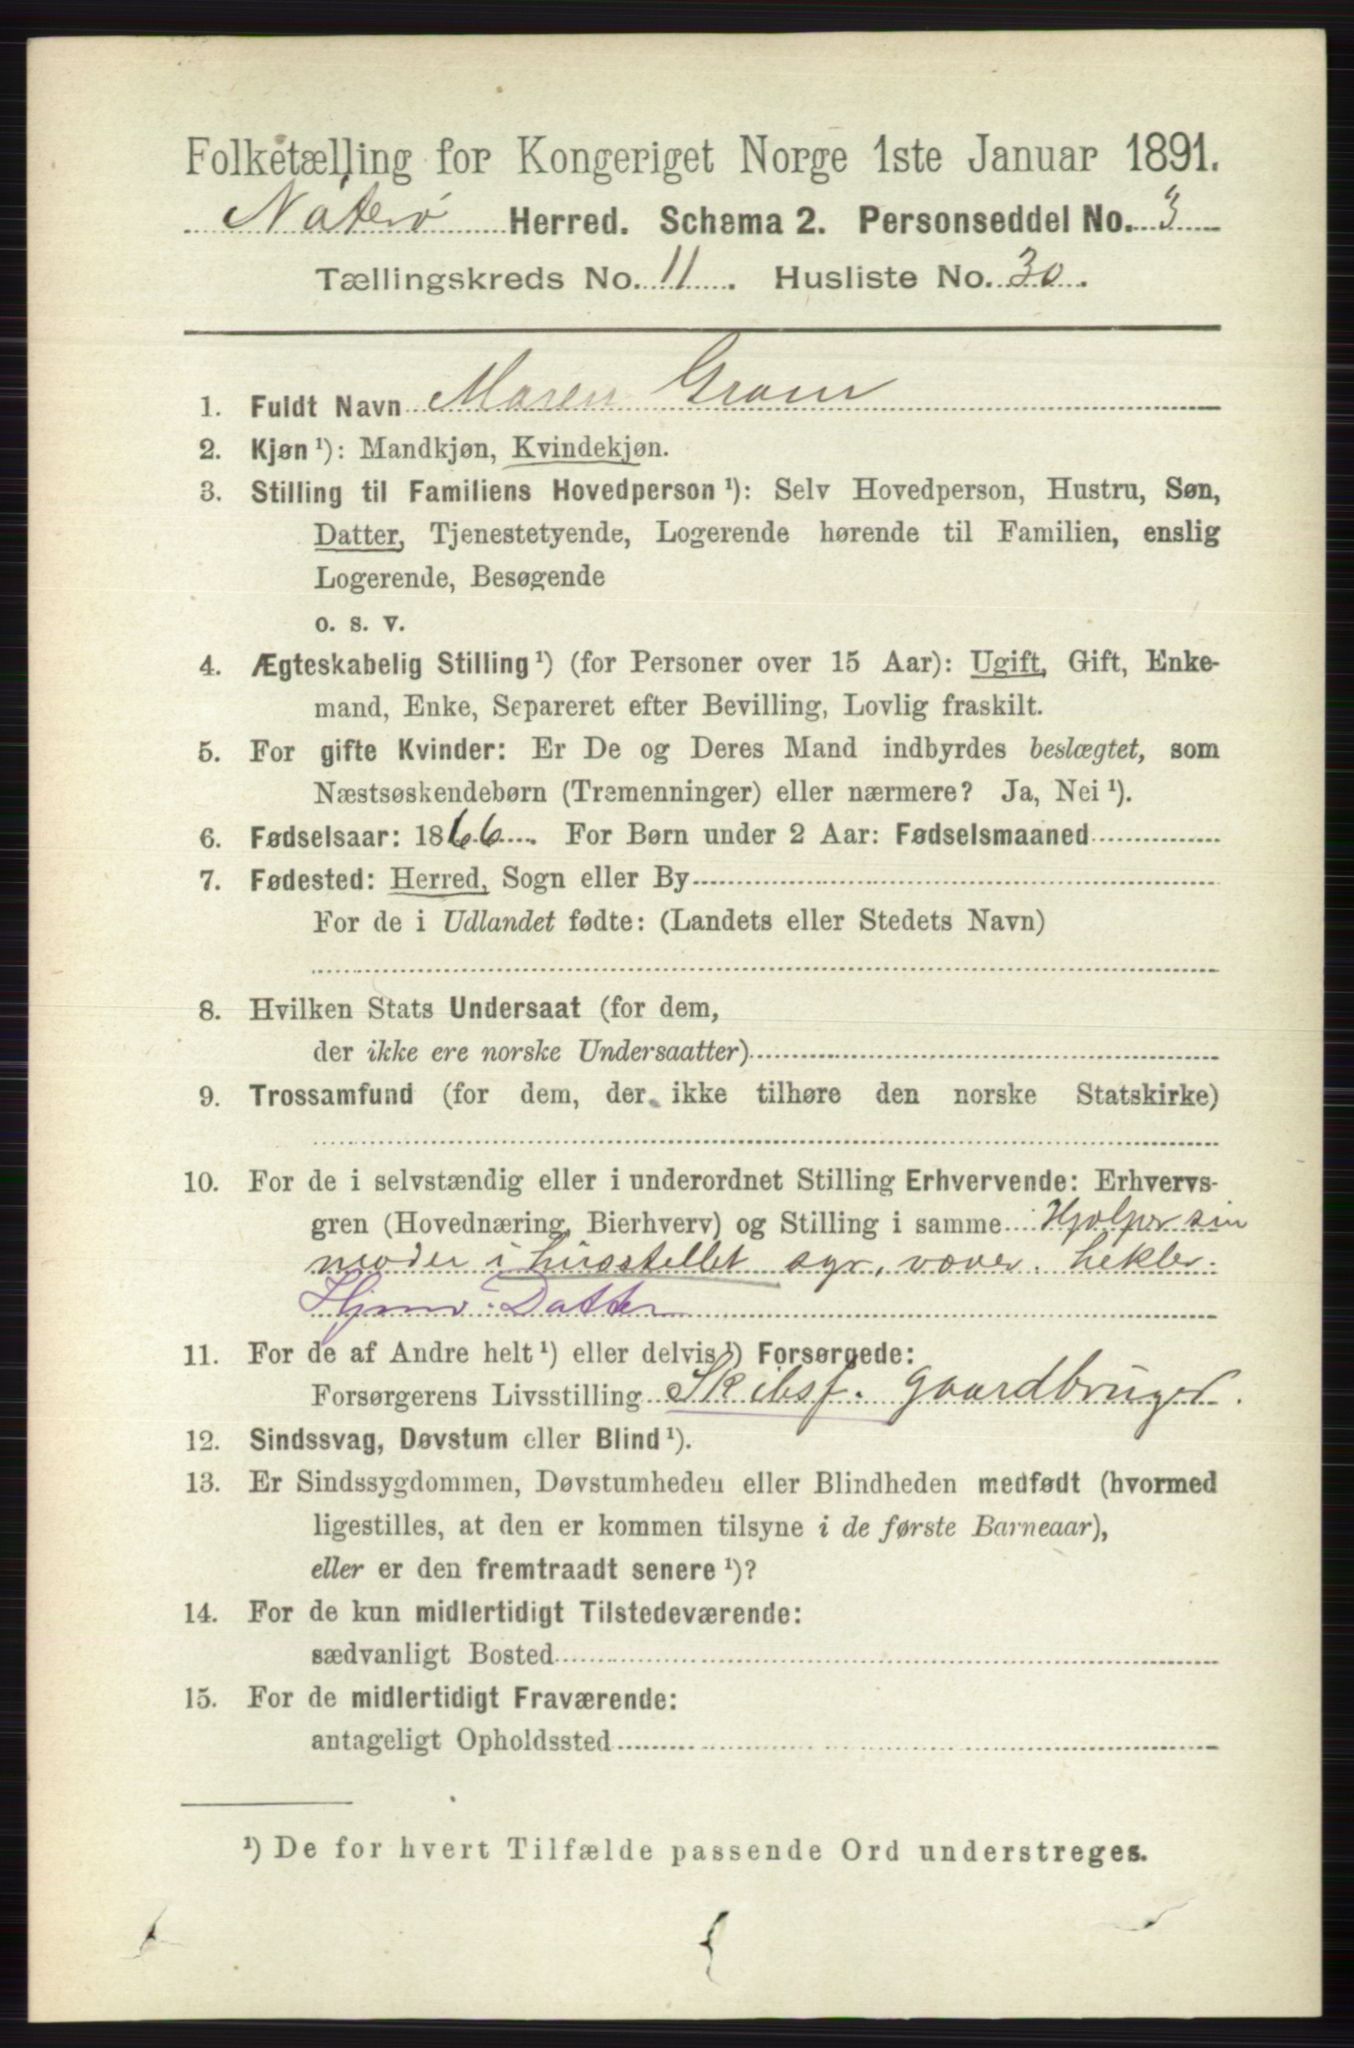 Folketælling for Kongeriget Norge 1ste Januar 1891.
Nøterø Herred. Schema 2. Personseddel No. 3
Tællingskreds No. 11. Husliste No. 30.
1. Fuldt Navn Maren Gram
2. Kjøn ¹): Mandkjøn, Kvindekjøn.
3. Stilling til Familiens Hovedperson ¹): Selv Hovedperson, Hustru, Søn,
Datter, Tjenestetyende, Logerende hørende til Familien, enslig
Logerende, Besøgende
o. s. v.
4. Ægteskabelig Stilling ¹) (for Personer over 15 Aar): Ugift, Gift, Enke-
mand, Enke, Separeret efter Bevilling, Lovlig fraskilt.
5. For gifte Kvinder: Er De og Deres Mand indbyrdes beslægtet, som
Næstsøskendebørn (Tremenninger) eller nærmere? Ja, Nei ¹).
6. Fødselsaar: 1866. For Børn under 2 Aar: Fødselsmaaned
7. Fødested: Herred, Sogn eller By
For de i Udlandet fødte: (Landets eller Stedets Navn)
8. Hvilken Stats Undersaat (for dem,
der ikke ere norske Undersaatter)
9. Trossamfund (for dem, der ikke tilhøre den norske Statskirke)
10. For de i selvstændig eller i underordnet Stilling Erhvervende: Erhvervs-
gren (Hovednæring, Bierhverv) og Stilling i samme Hjælper sin
moder i husstellet syr, væver. hekler.
Hjemv. Datter
11. For de af Andre helt ¹) eller delvis ¹) Forsørgede:
Forsørgerens Livsstilling Skibsf. gaardbruger.
12. Sindssvag, Døvstum eller Blind ¹).
13. Er Sindssygdommen, Døvstumheden eller Blindheden medfødt (hvormed
ligestilles, at den er kommen tilsyne i de første Barneaar),
eller er den fremtraadt senere ¹)?
14. For de kun midlertidigt Tilstedeværende:
sædvanligt Bosted
15. For de midlertidigt Fraværende:
antageligt Opholdssted
¹) De for hvert Tilfælde passende Ord understreges.